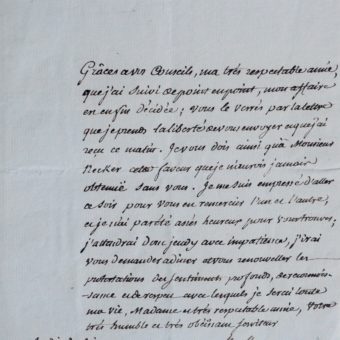 Grâces à vos Conseils, ma très respectable amie,
que j'ai suivi de point en point, mon affaire
en enfin décidée; vous le verrés par la lettre
que je prends la liberté de vous envoyer et que j'ai
reçu ce matin. Je vous dois ainsi qu'à Monsieur
Necker cette faveur que je n'aurois jamais
obtenüe sans vous. Je me suis empressé d'aller
ce soir pour vous en remercier l'un et l'autre,
et je n'ai pas été assés heureux pour vous trouver;
j'attendrai donc jeudy avec impatience, j'irai
vous demander à diner et vous renouveller les
protestations des sentiments profonds, de reconnois-
sance et de respect avec lesquels je serai toute
ma vie, Madame et très respectable amie, Votre
très humble et très obéissant serviteur